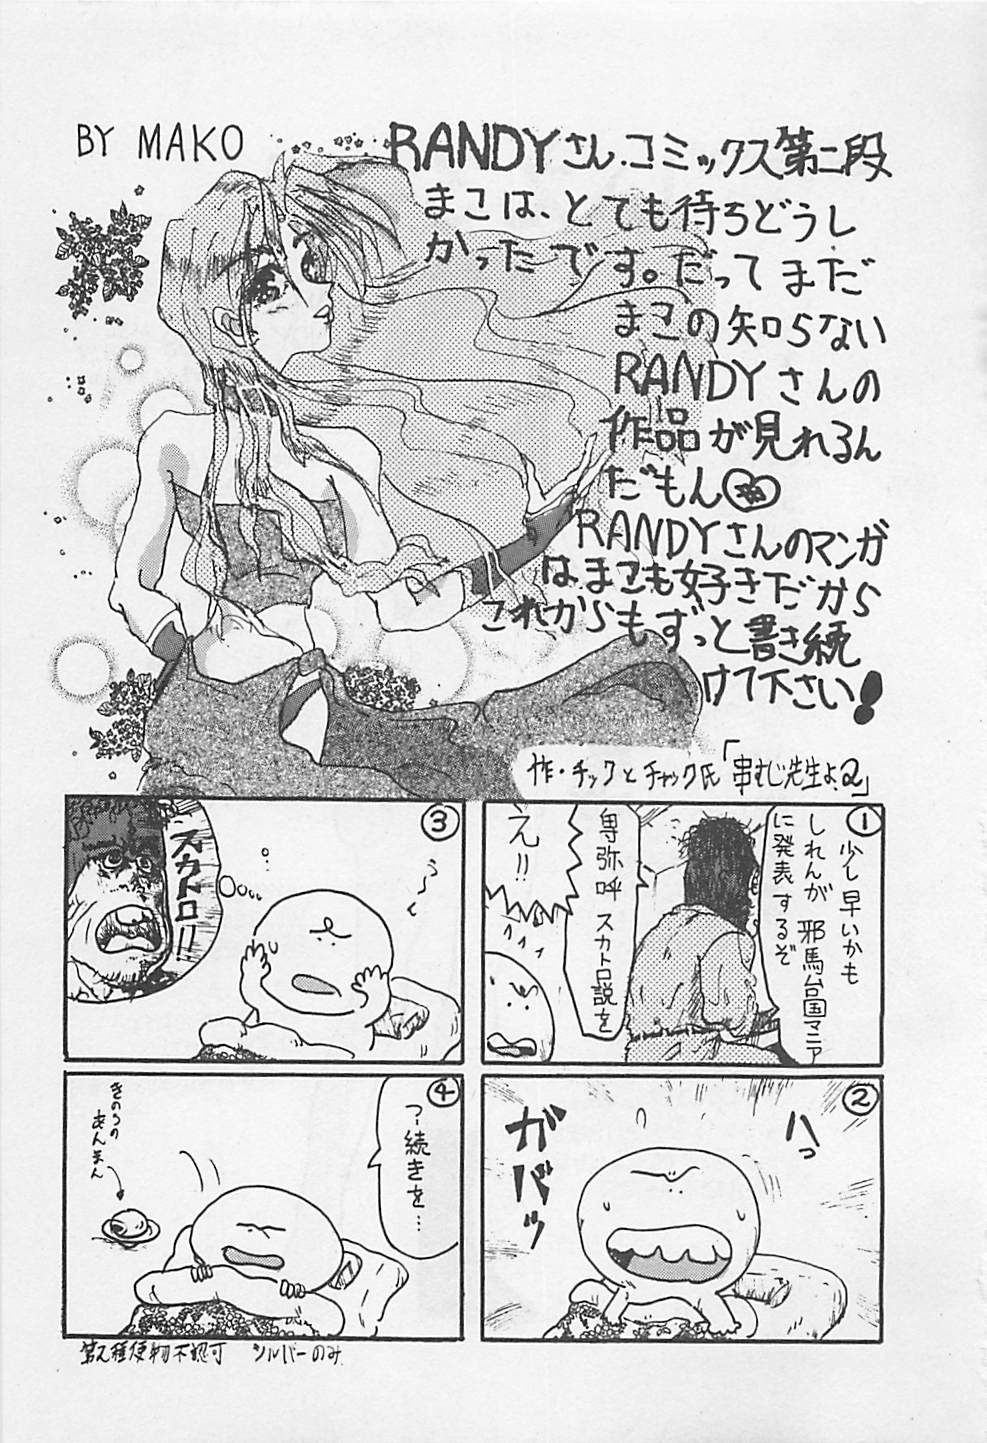 BY MAKO
RANDYさん.コミックス第二段
まこは、とても待ちどうし
かったです。だってまだ
まこの知らない
RANDYさんの
作品が見れるん
だもん
RANDYさんのマンガ
は、まこも好きだから
これからもずっと書き続
けて下さい!
作・チックとチャック氏「串むじ先生よ2」
①
少し早いかも
しれんが 邪馬台国マニア
に発表するぞ
卑弥呼 スカトロ説を
え!!
②
ハっ
ガバッ
③
う〜〜
スカトロ!!
④
つ、続きを…
きのうの
あんまん
シルバーのみ